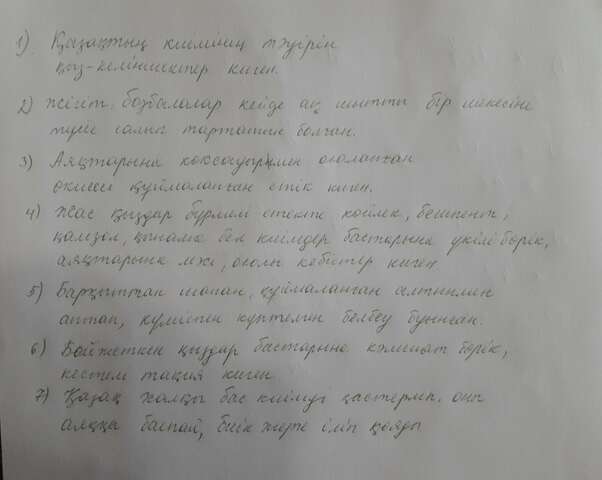 1) Қазақтың киімінің тәуірін
қыз-келіншектер киген.
2) Жігіт, бозбалалар кейде ақ шытты бір шекесіне
түйе салып тартатын болған.
3) Аяқтарына көксауырмен оюланған
өкшесі құймаланған етік киген.
4) Жас қыздар бүрмелі етекті көйлек, бешпент,
қамзол, қынама бел киімдер бастарына үкілі бөрік,
аяқтарына мәсі, оюлы кебістер киген
5) Барқыттан шапан, құймаланған алтынмен
аптап, күміспен күптелген белбеу буынған.
6) Бойжеткен қыздар бастарына кәмшат бөрік,
кестелі тақия киген
7) Қазақ халқы бас киімді қастерлеп, оны
аяққа баспай, биік жерге іліп қояды